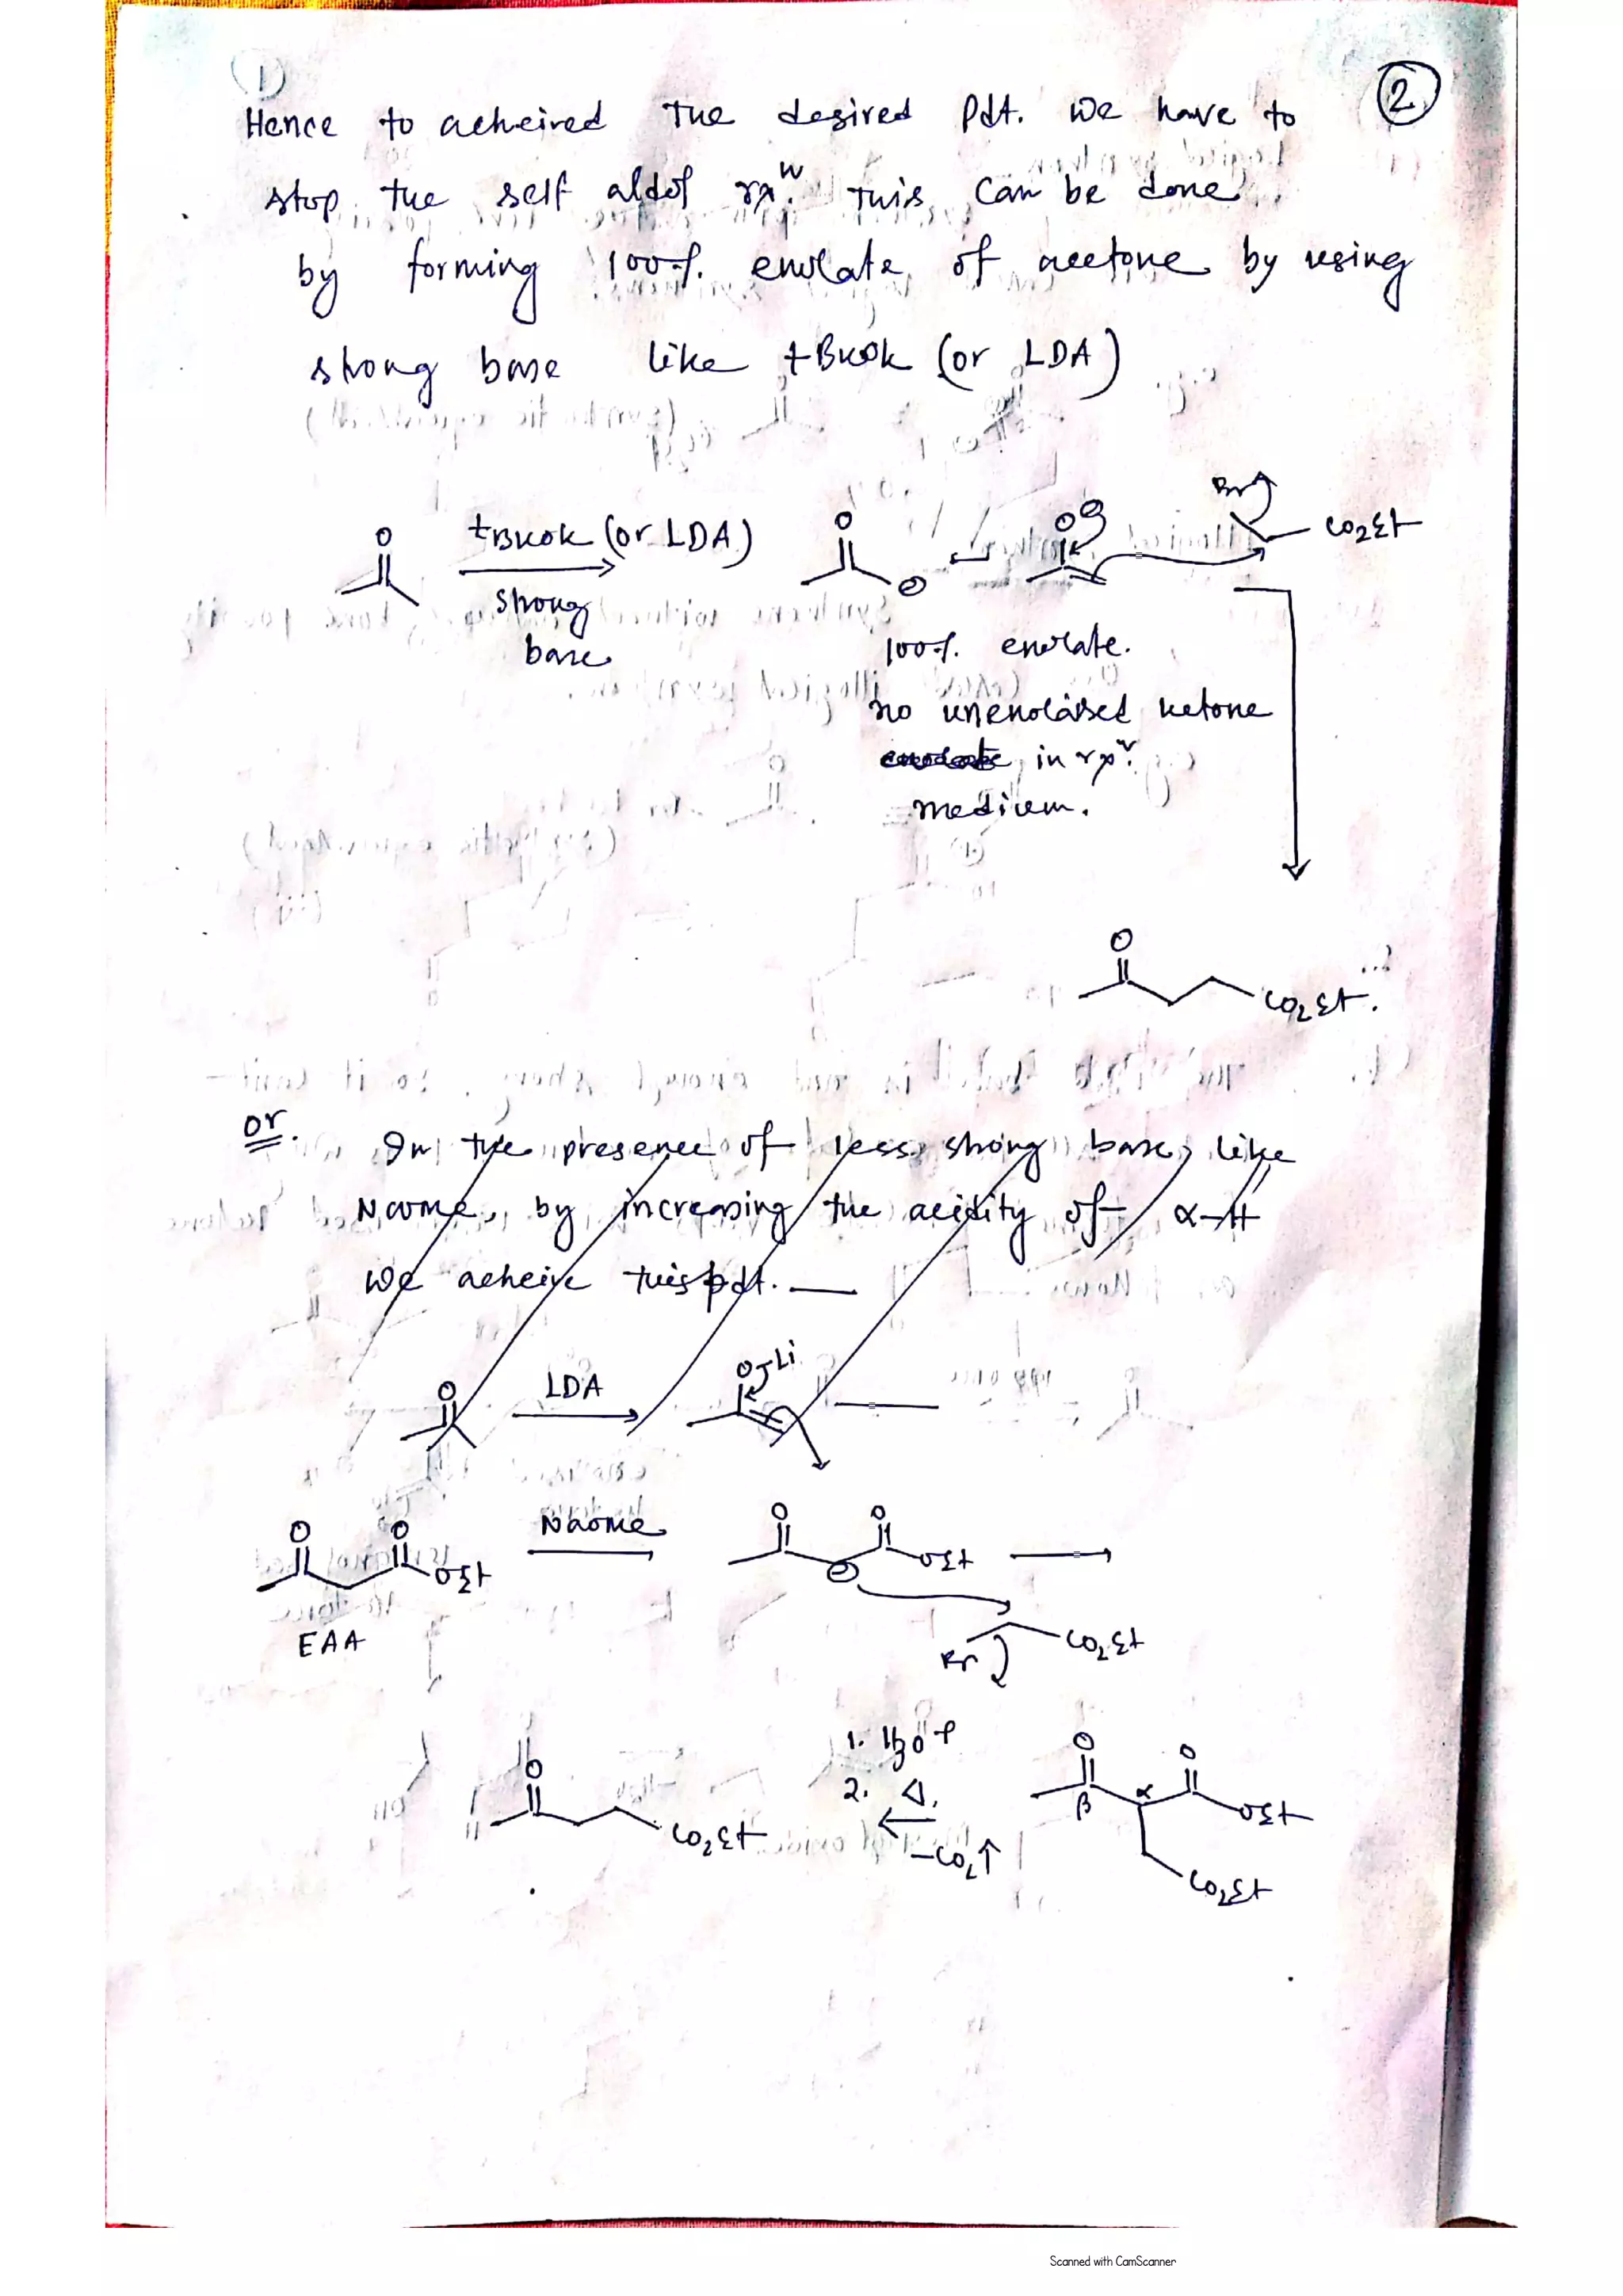 2
Hence to acheived The desired Pdt. We have to
stop the self aldol rxn. This can be done
by forming 100% enolate of acetone by using
strong base like tBuOk (or LDA)
O
tBuOk (or LDA)
strong
base
O
⊖
O⊖
Br
CO2Et
100% enolate.
no unenolaised ketone
in rxn.
medium.
O
CO2Et.
or.
In the presence of less strong base, like
NaOMe, by increasing the acidity of α-H
We acheive this pdt.
O
LDA
O-Li
O O
OEt
EAA
NaOMe
O O
⊖
OEt
Br
CO2Et
O
β
α
O
OEt
CO2Et
1. H3O+
2. Δ,
-CO2↑
O
CO2Et
Scanned with CamScanner